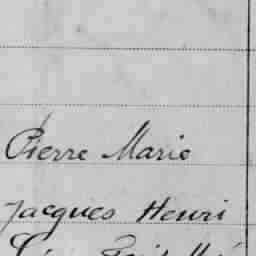 Pierre Marie
Jacques Henri